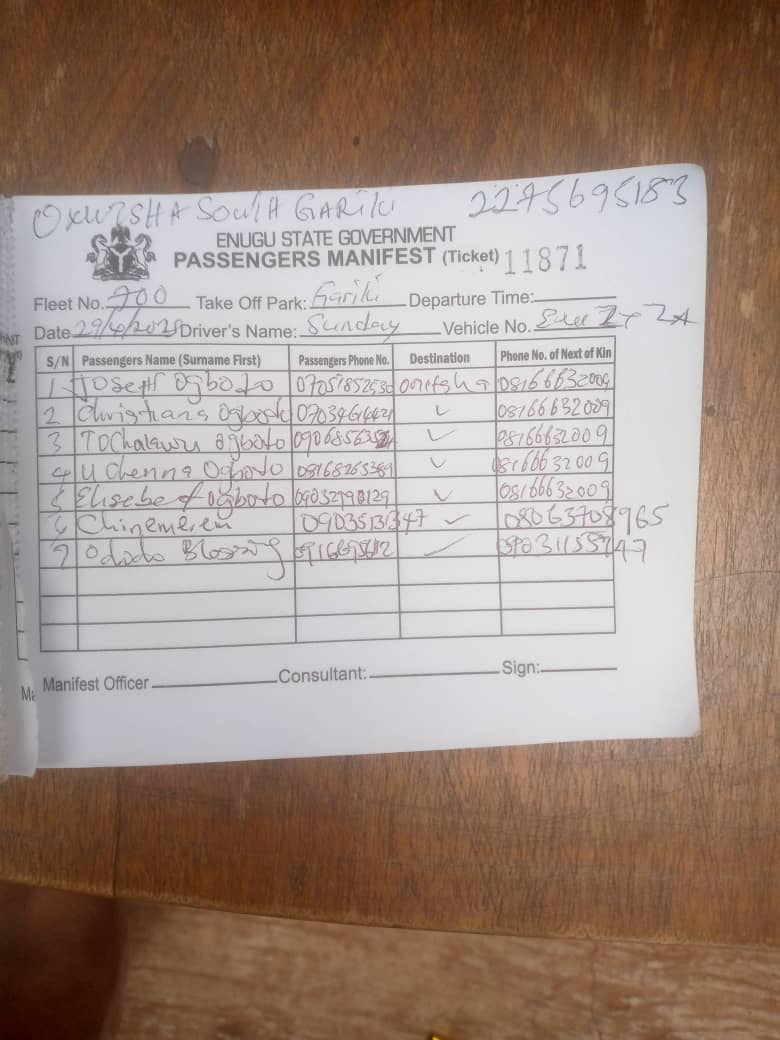 SOUTH GARIKI 2275695183
ENUGU STATE GOVERNMENT
PASSENGERS MANIFEST (Ticket) 11871
Fleet No. 700 Take Off Park: Gariki Departure Time:
Date 29/4/2025 Driver's Name: Sunday Vehicle No.
S/N Passengers Name (Surname First) Passengers Phone No. Destination Phone No. of Next of Kin
1 Joseph Ogbodo 07051852530 onitsha 08166632009
2 Christiana Ogbodo 07034614421 ✓ 08166632009
3 Tochukwu Ogbodo ✓ 08166632009
4 Uchenna Ogbodo 08168265389 ✓ 08166632009
5 Ogbodo ✓ 08166632009
6 Chinemerem 09035131347 ✓ 08063708965
7 Ododo Blessing ✓
Manifest Officer Consultant: Sign: